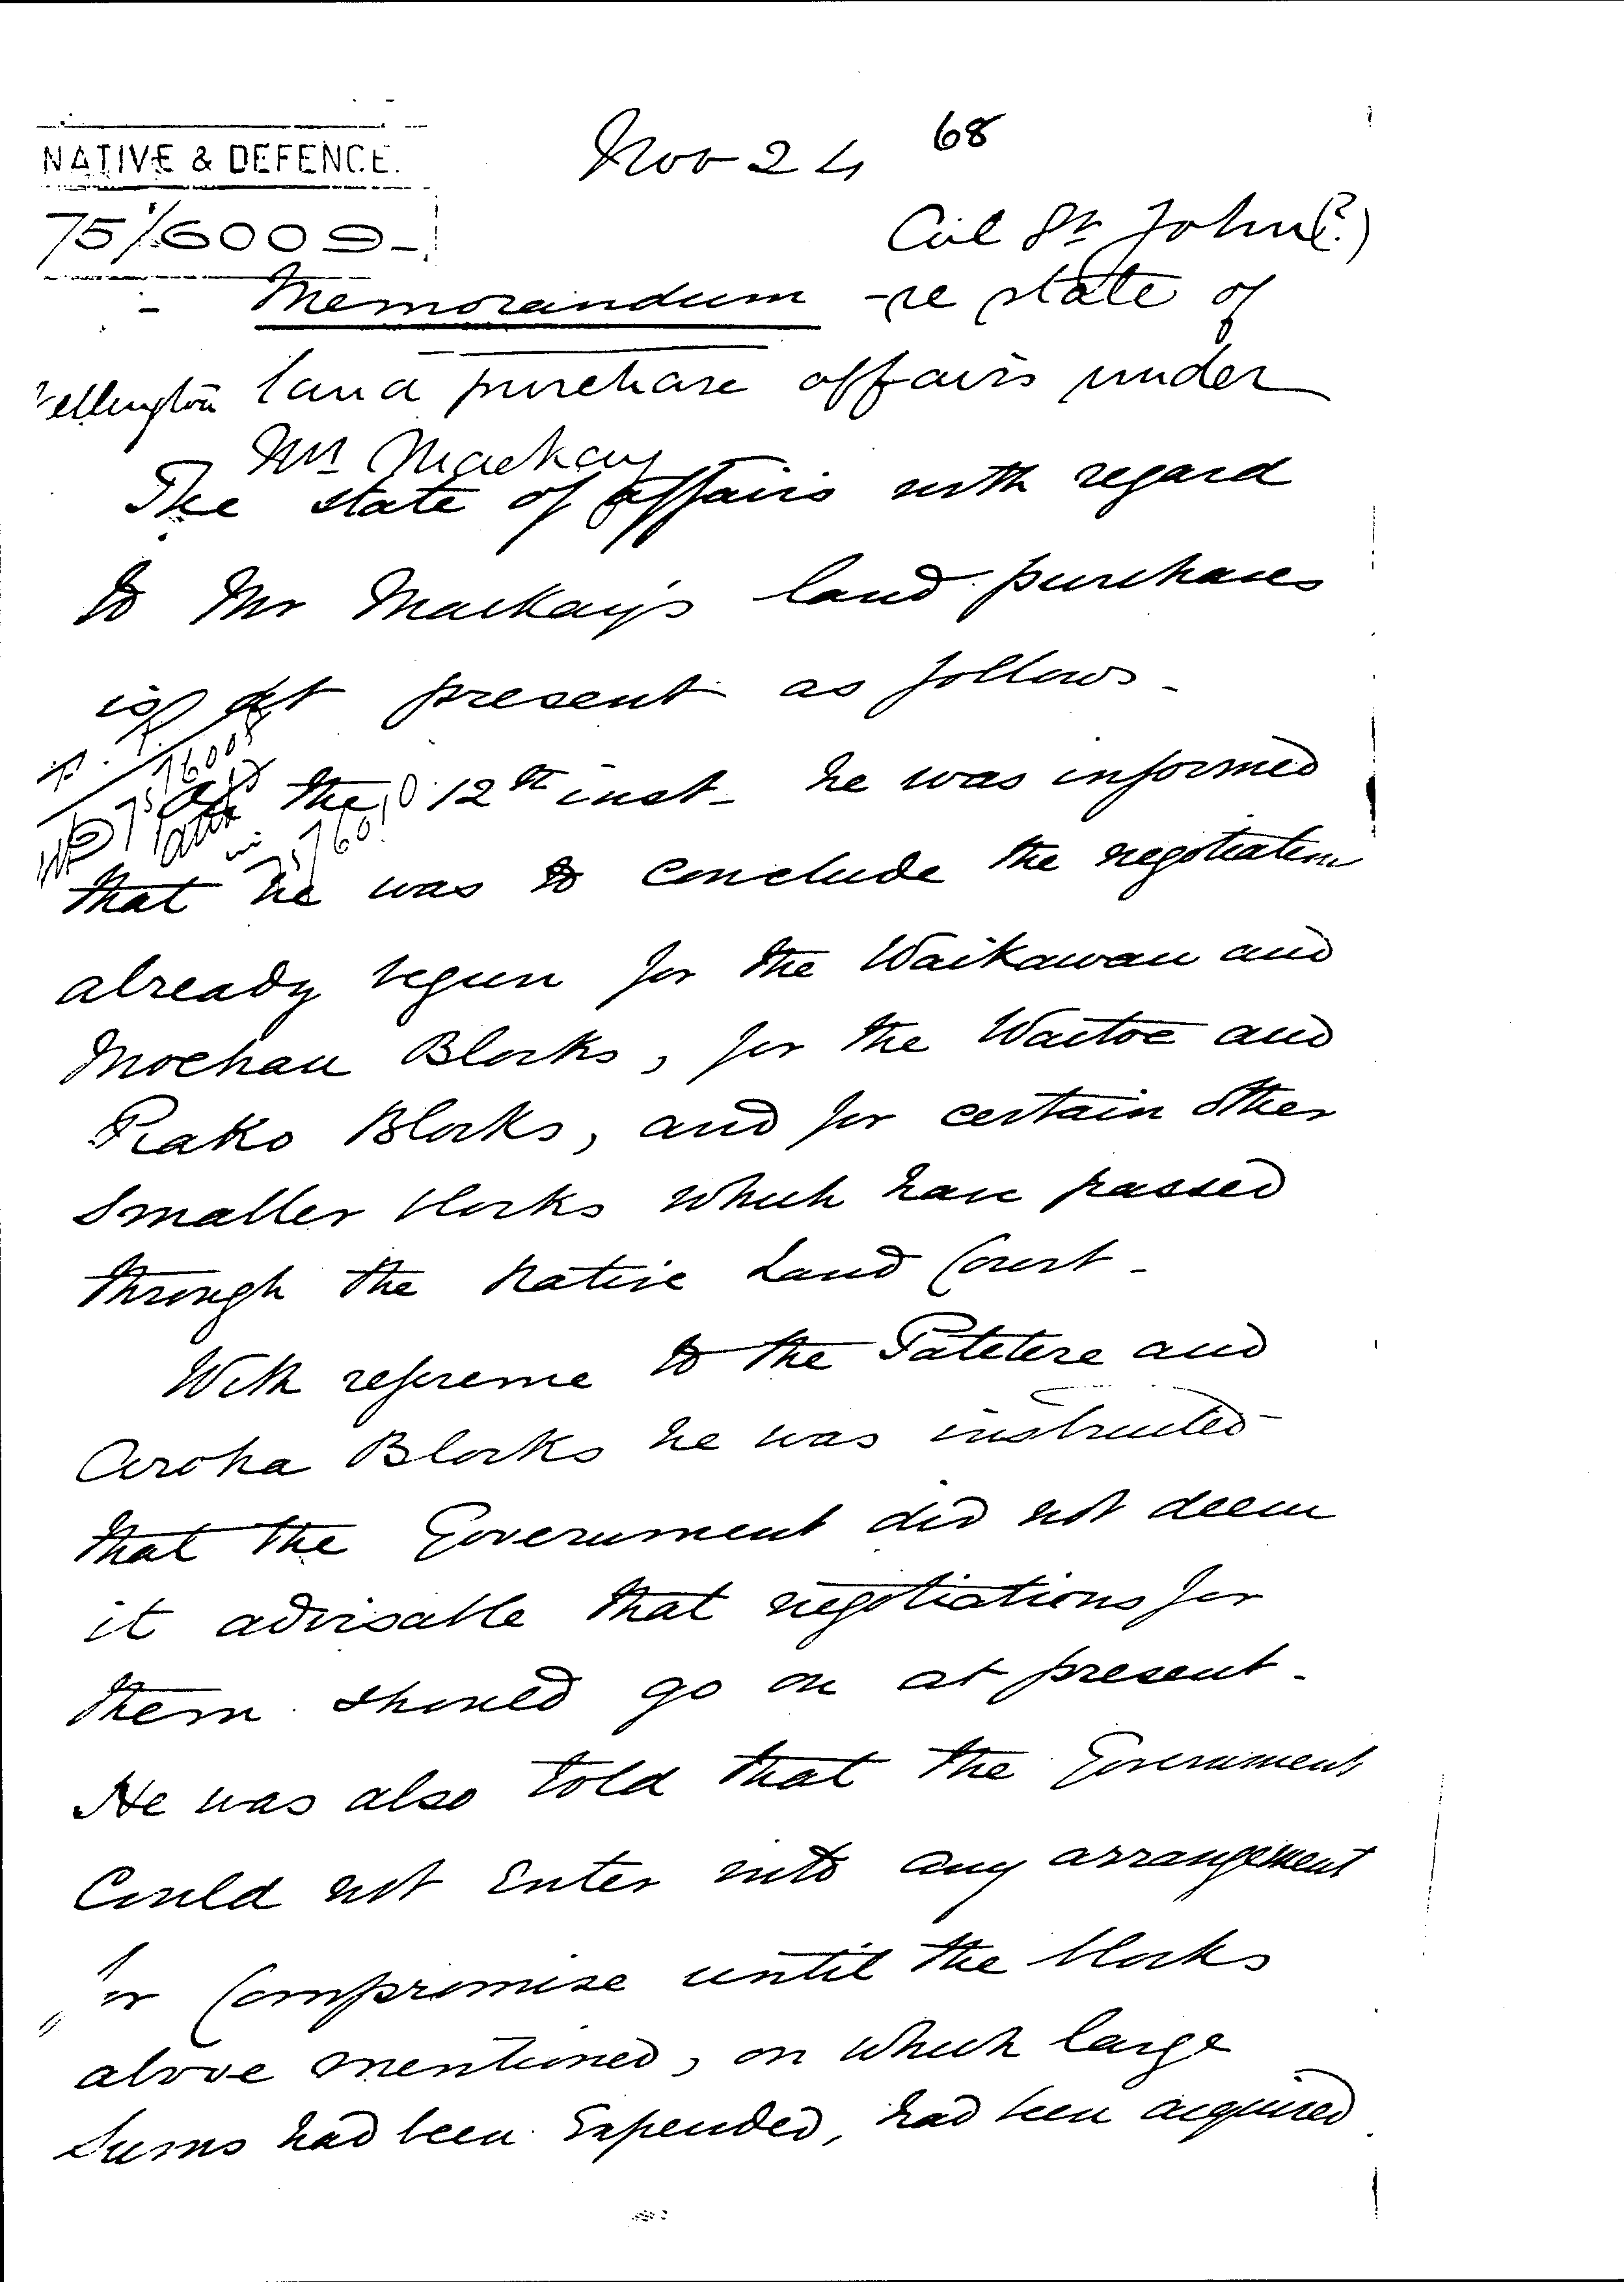 68
NATIVE & DEFENCE.
Nov 24
75/6009
Col St John (?)
Memorandum - re state of
Wellington land purchase affairs under
Mr Mackay
The state of affairs with regard
to Mr Mackay's land purchases
is at present as follows -
On the 12th inst - he was informed
that he was to conclude the negotiation
already begun for the Waikawau and
Moehau Blocks, for the Waitoa and
Piako Blocks, and for certain other
smaller blocks which have passed
through the Native Land Court -
With reference to the Patetere and
Aroha Blocks he was instructed
that the Government did not deem
it advisable that negotiations for
them should go on at present -
He was also told that the Government
Could not Enter into any arrangement
or Compromise until the blocks
above mentioned, on which large
Sums had been Expended, had been acquired.